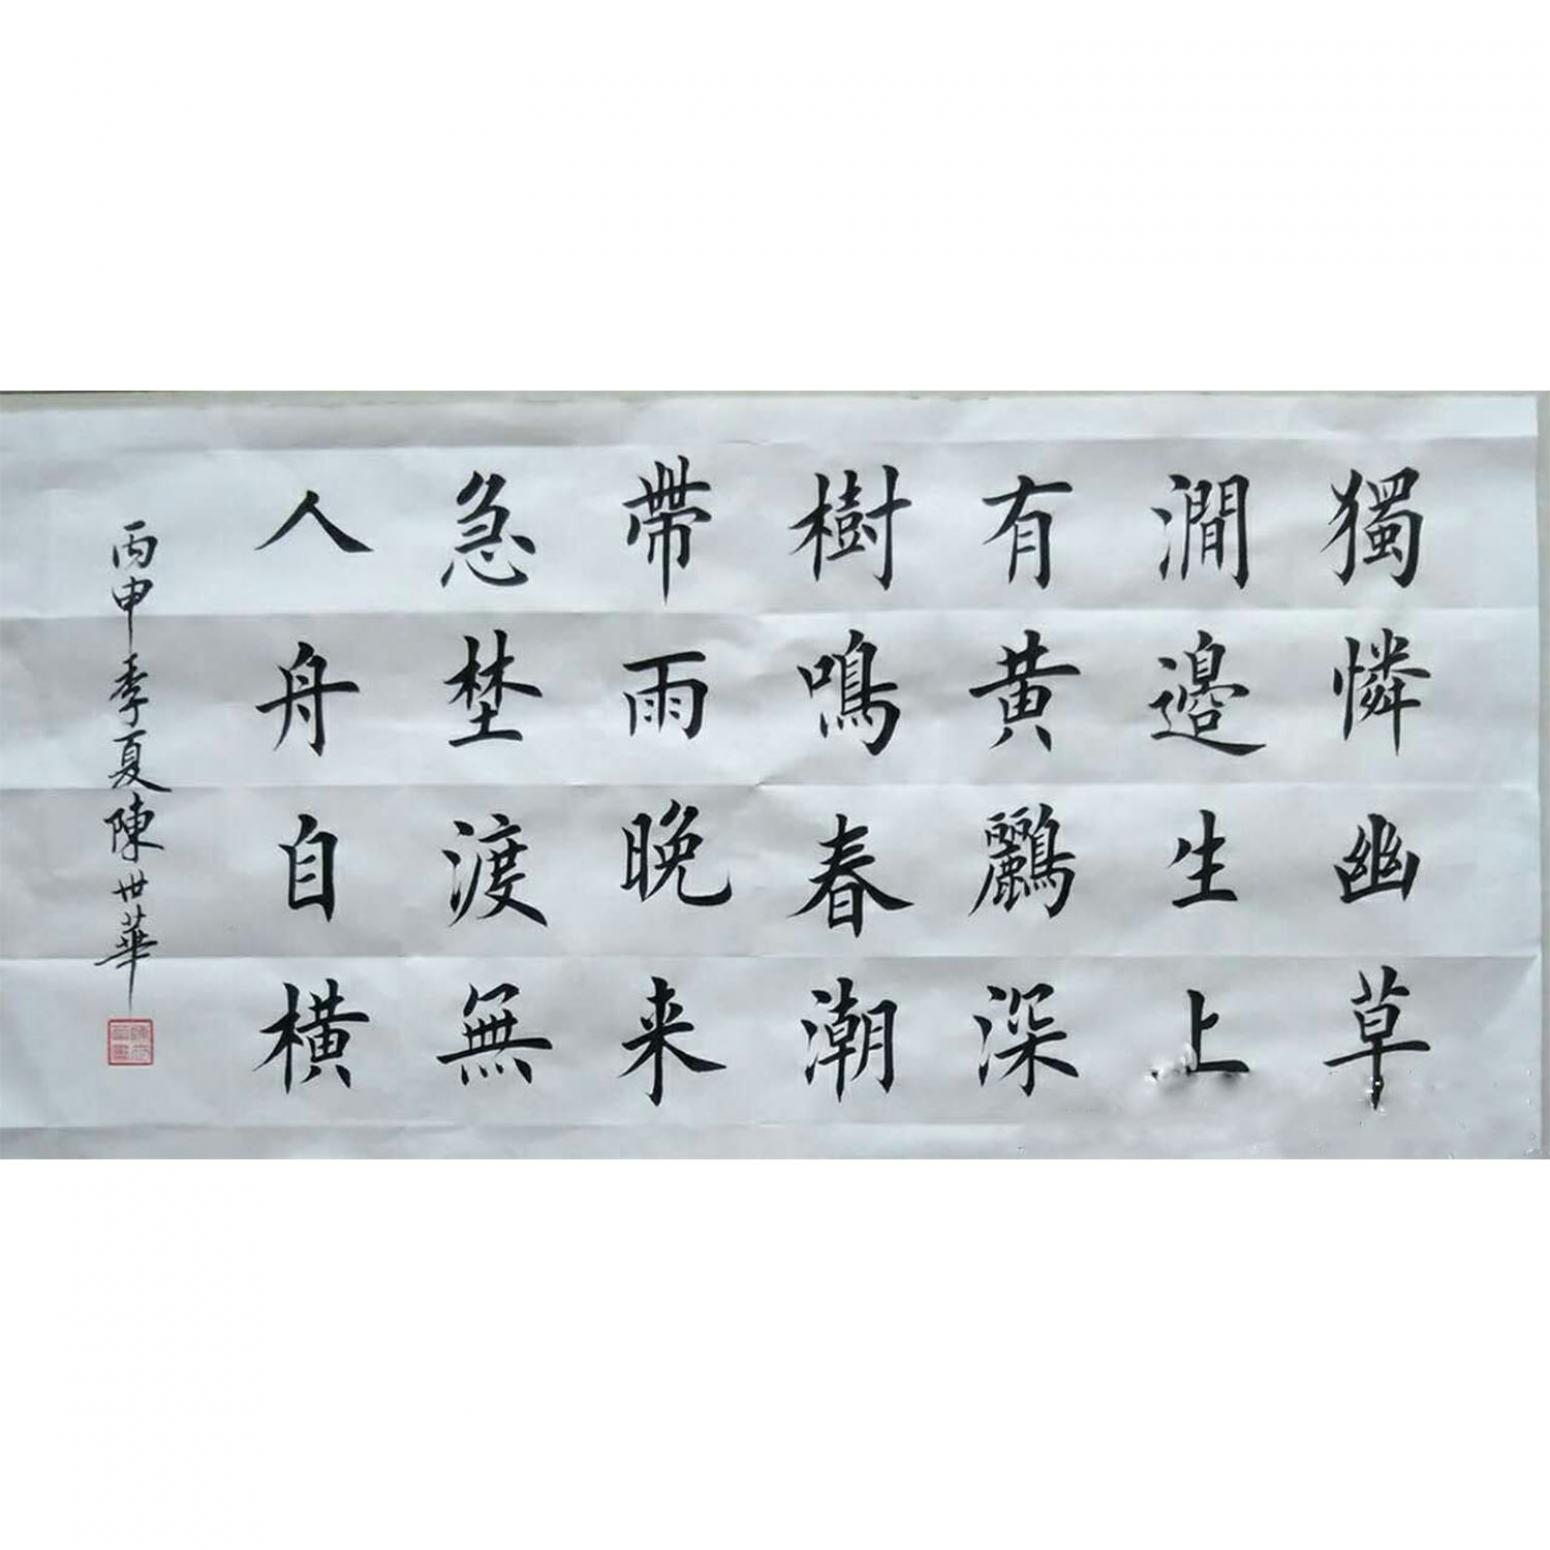 獨憐幽草
澗邊生上
有黄鸝深
樹鳴春潮
帶雨晚来
急埜渡無
人舟自横
丙申季夏陳世華